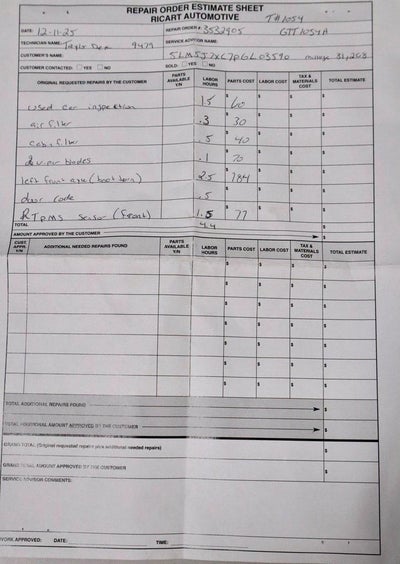 REPAIR ORDER ESTIMATE SHEET
RICART AUTOMOTIVE
TH1054
DATE: 12-11-25 REPAIR ORDER #: 3532905 GTT1054A
TECHNICIAN NAME: Taylor 9479 SERVICE ADVISOR NAME:
CUSTOMER'S NAME: 5LM5J7XC7PGL03590 mileage 31,268
CUSTOMER CONTACTED: YES NO SOLD: YES NO
ORIGINAL REQUESTED REPAIRS BY THE CUSTOMER PARTS AVAILABLE Y/N LABOR HOURS PARTS COST LABOR COST TAX & MATERIALS COST TOTAL ESTIMATE
used car inspection 1.5 $ 60 $ $ $
air filter .3 $ 30 $ $ $
cabin filter .5 $ 40 $ $ $
2 wiper blades .1 $ 70 $ $ $
left front axle (boot torn) 2.5 $ 784 $ $ $
door code .5 $ $ $ $
RTPMS sensor (front) 1.5 $ 77 $ $ $
TOTAL
AMOUNT APPROVED BY THE CUSTOMER
CUST. APPR. Y/N ADDITIONAL NEEDED REPAIRS FOUND PARTS AVAILABLE Y/N LABOR HOURS PARTS COST LABOR COST TAX & MATERIALS COST TOTAL ESTIMATE
$ $ $ $
$ $ $ $
$ $ $ $
$ $ $ $
$ $ $ $
$ $ $ $
$ $ $ $
TOTAL ADDITIONAL REPAIRS FOUND $
TOTAL ADDITIONAL AMOUNT APPROVED BY THE CUSTOMER $
GRAND TOTAL (Original requested repairs plus additional needed repairs) $
GRAND TOTAL AMOUNT APPROVED BY THE CUSTOMER $
SERVICE ADVISOR COMMENTS:
WORK APPROVED: DATE: TIME: